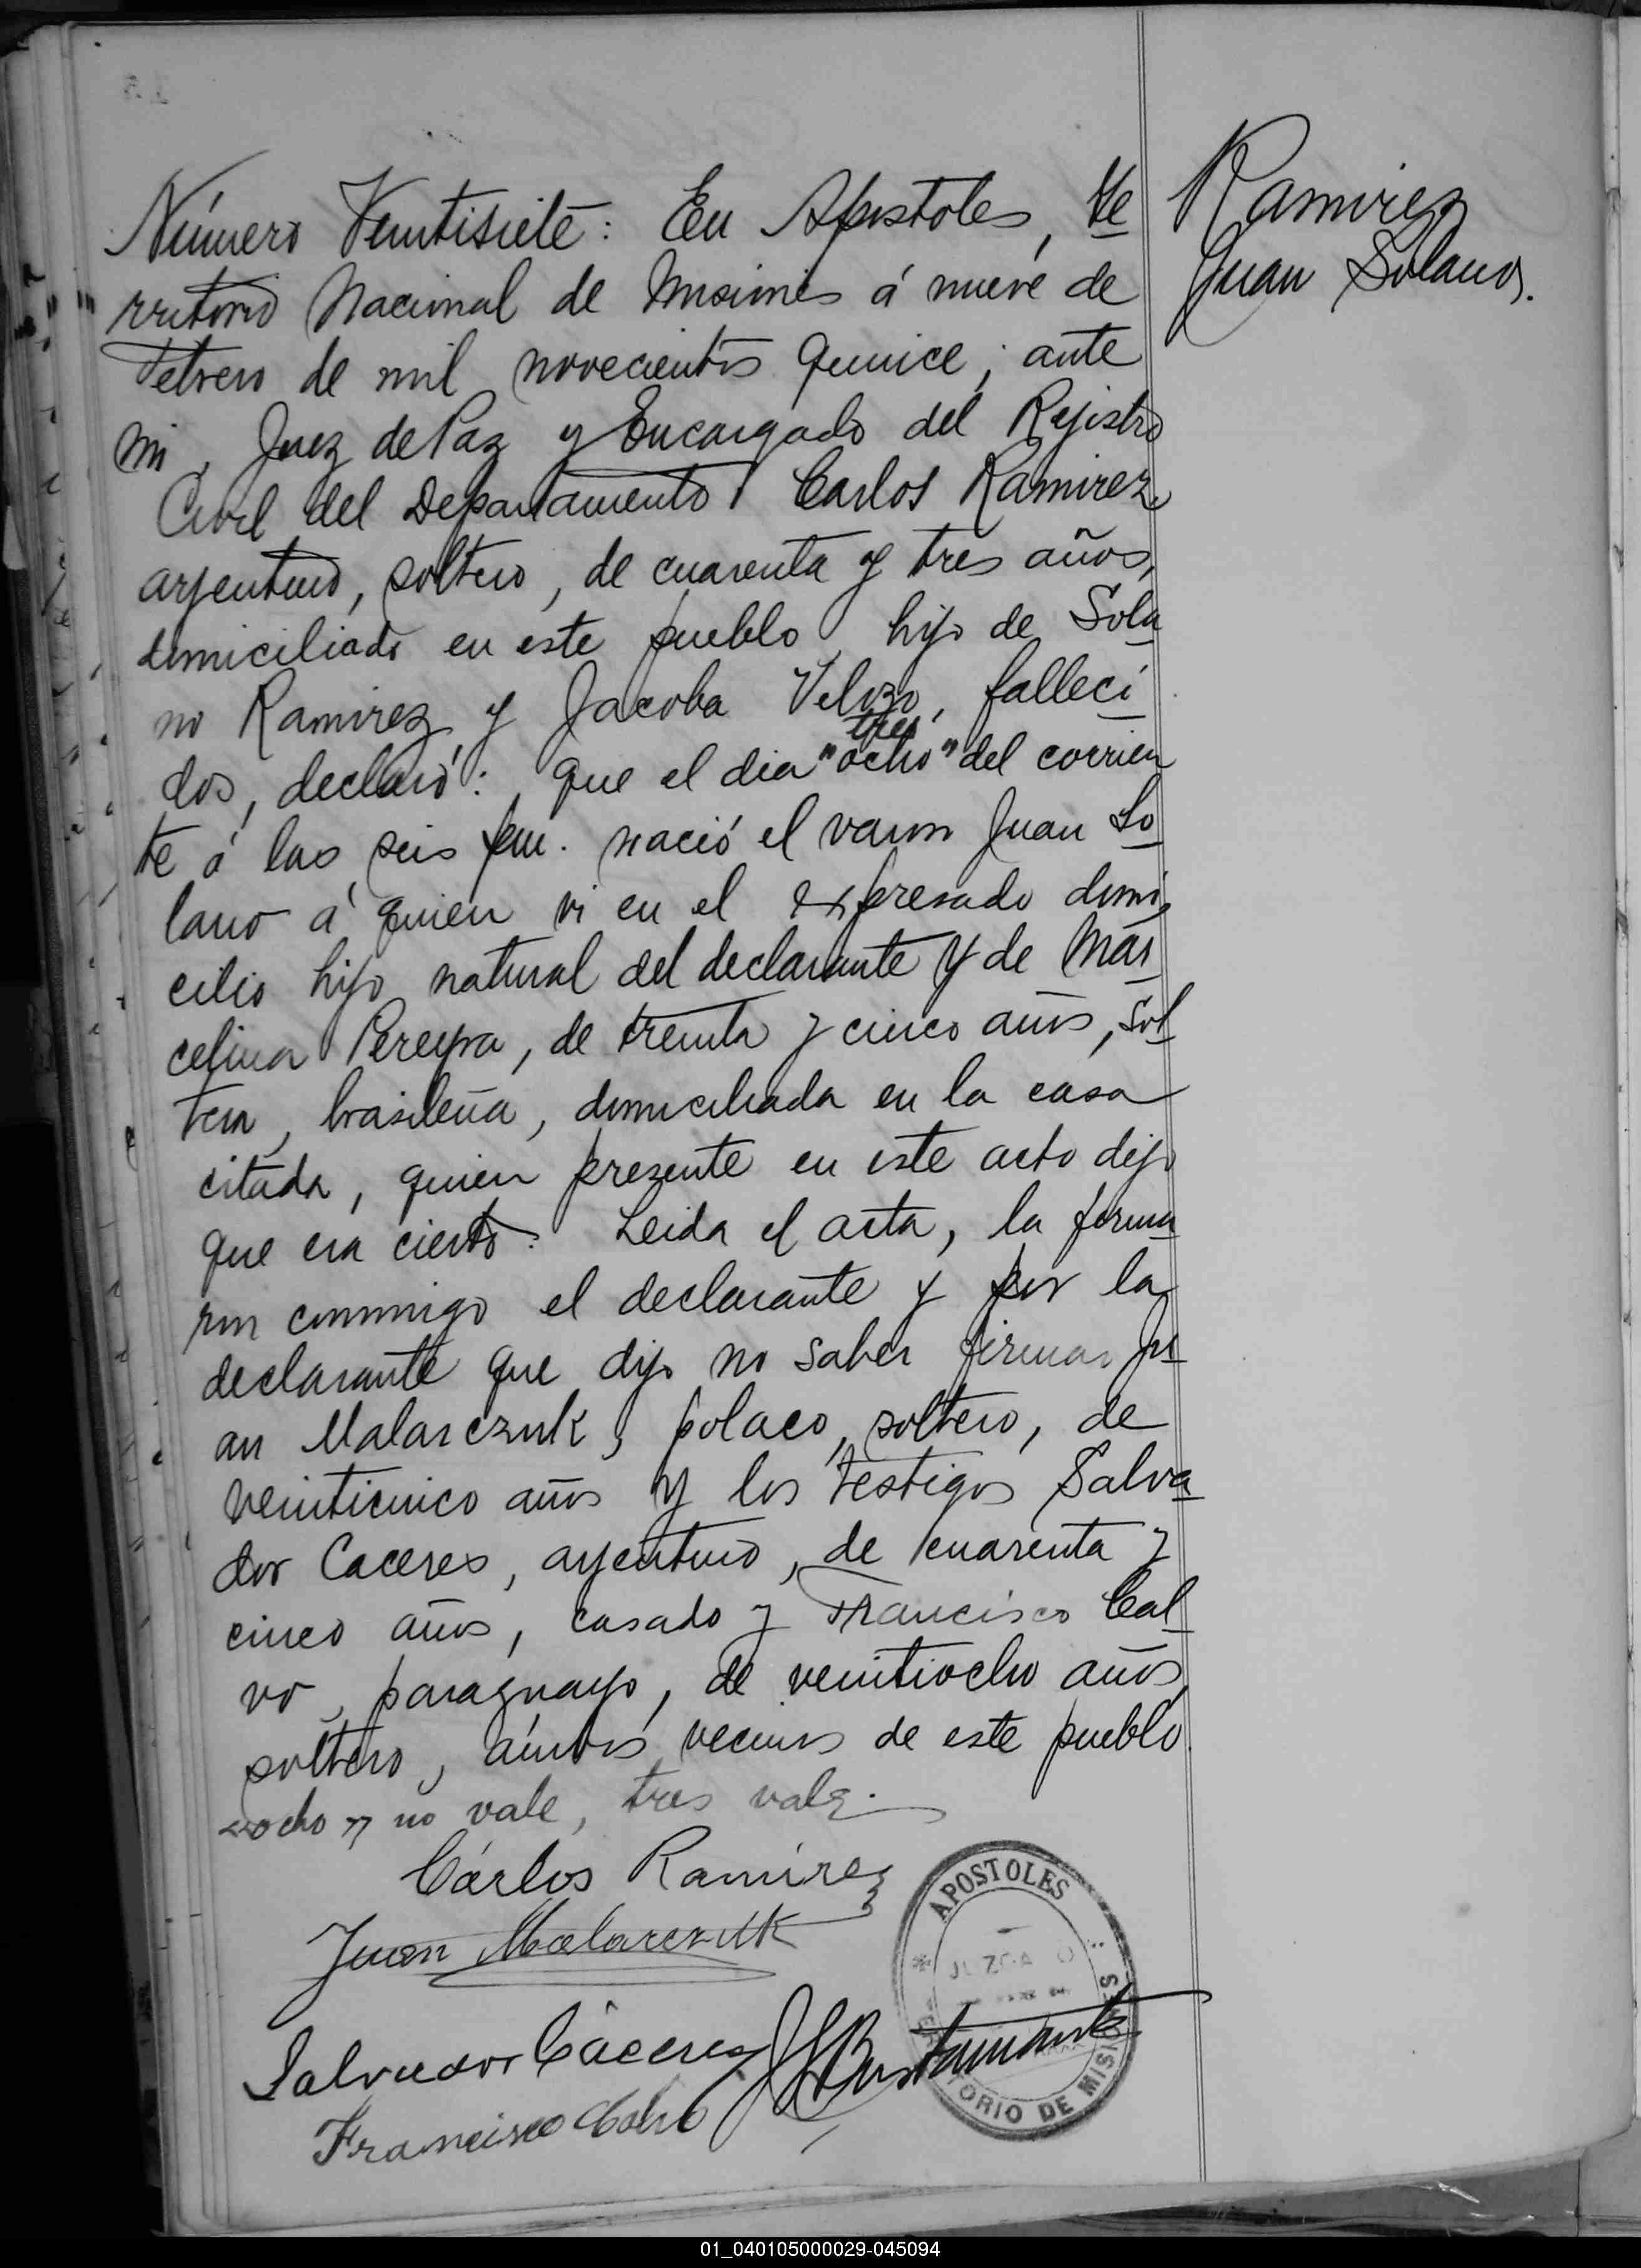 Número Veintisiete: En Apostoles, Te
rritorio Nacional de Misiones á nueve de
Febrero de mil novecientos quince, ante
mi, Juez de Paz y Encargado del Rejistro
Civil del Departamento Carlos Ramirez,
arjentino, soltero, de cuarenta y tres años,
domiciliado en este pueblo, hijo de Sola
no Ramirez y Jacoba Velozo, falleci
tres
dos, declaró: que el dia "ocho" del corrien
te á las seis pm. nació el varon Juan So
lano á quien vi en el expresado domi
cilio hijo natural del declarante y de Mar
celina Pereyra, de treinta y cinco años, sol
tera, brasileña, domiciliada en la casa
citada, quien prezente en este acto dijo
que era cierto. Leida el acta, la firma
ron conmigo el declarante y por la
declarante que dijo no saber firmar Ju
an Malarczuk, polaco, soltero, de
veinticinco años y los testigos Salva
dor Caceres, arjentino, de cuarenta y
cinco años, casado y Francisco Cal
vo, paraguayo, de veintiocho años,
soltero, ámbos vecinos de este pueblo.
"ocho" no vale, tres vale.
Cárlos Ramirez
Juan Malarczuk
Salvador Cáceres
Bustamante
Francisco Calvo
Ramirez
Juan Solano.
APOSTOLES
JUZGADO
TERRITORIO DE MISIONES
01_040105000029-045094